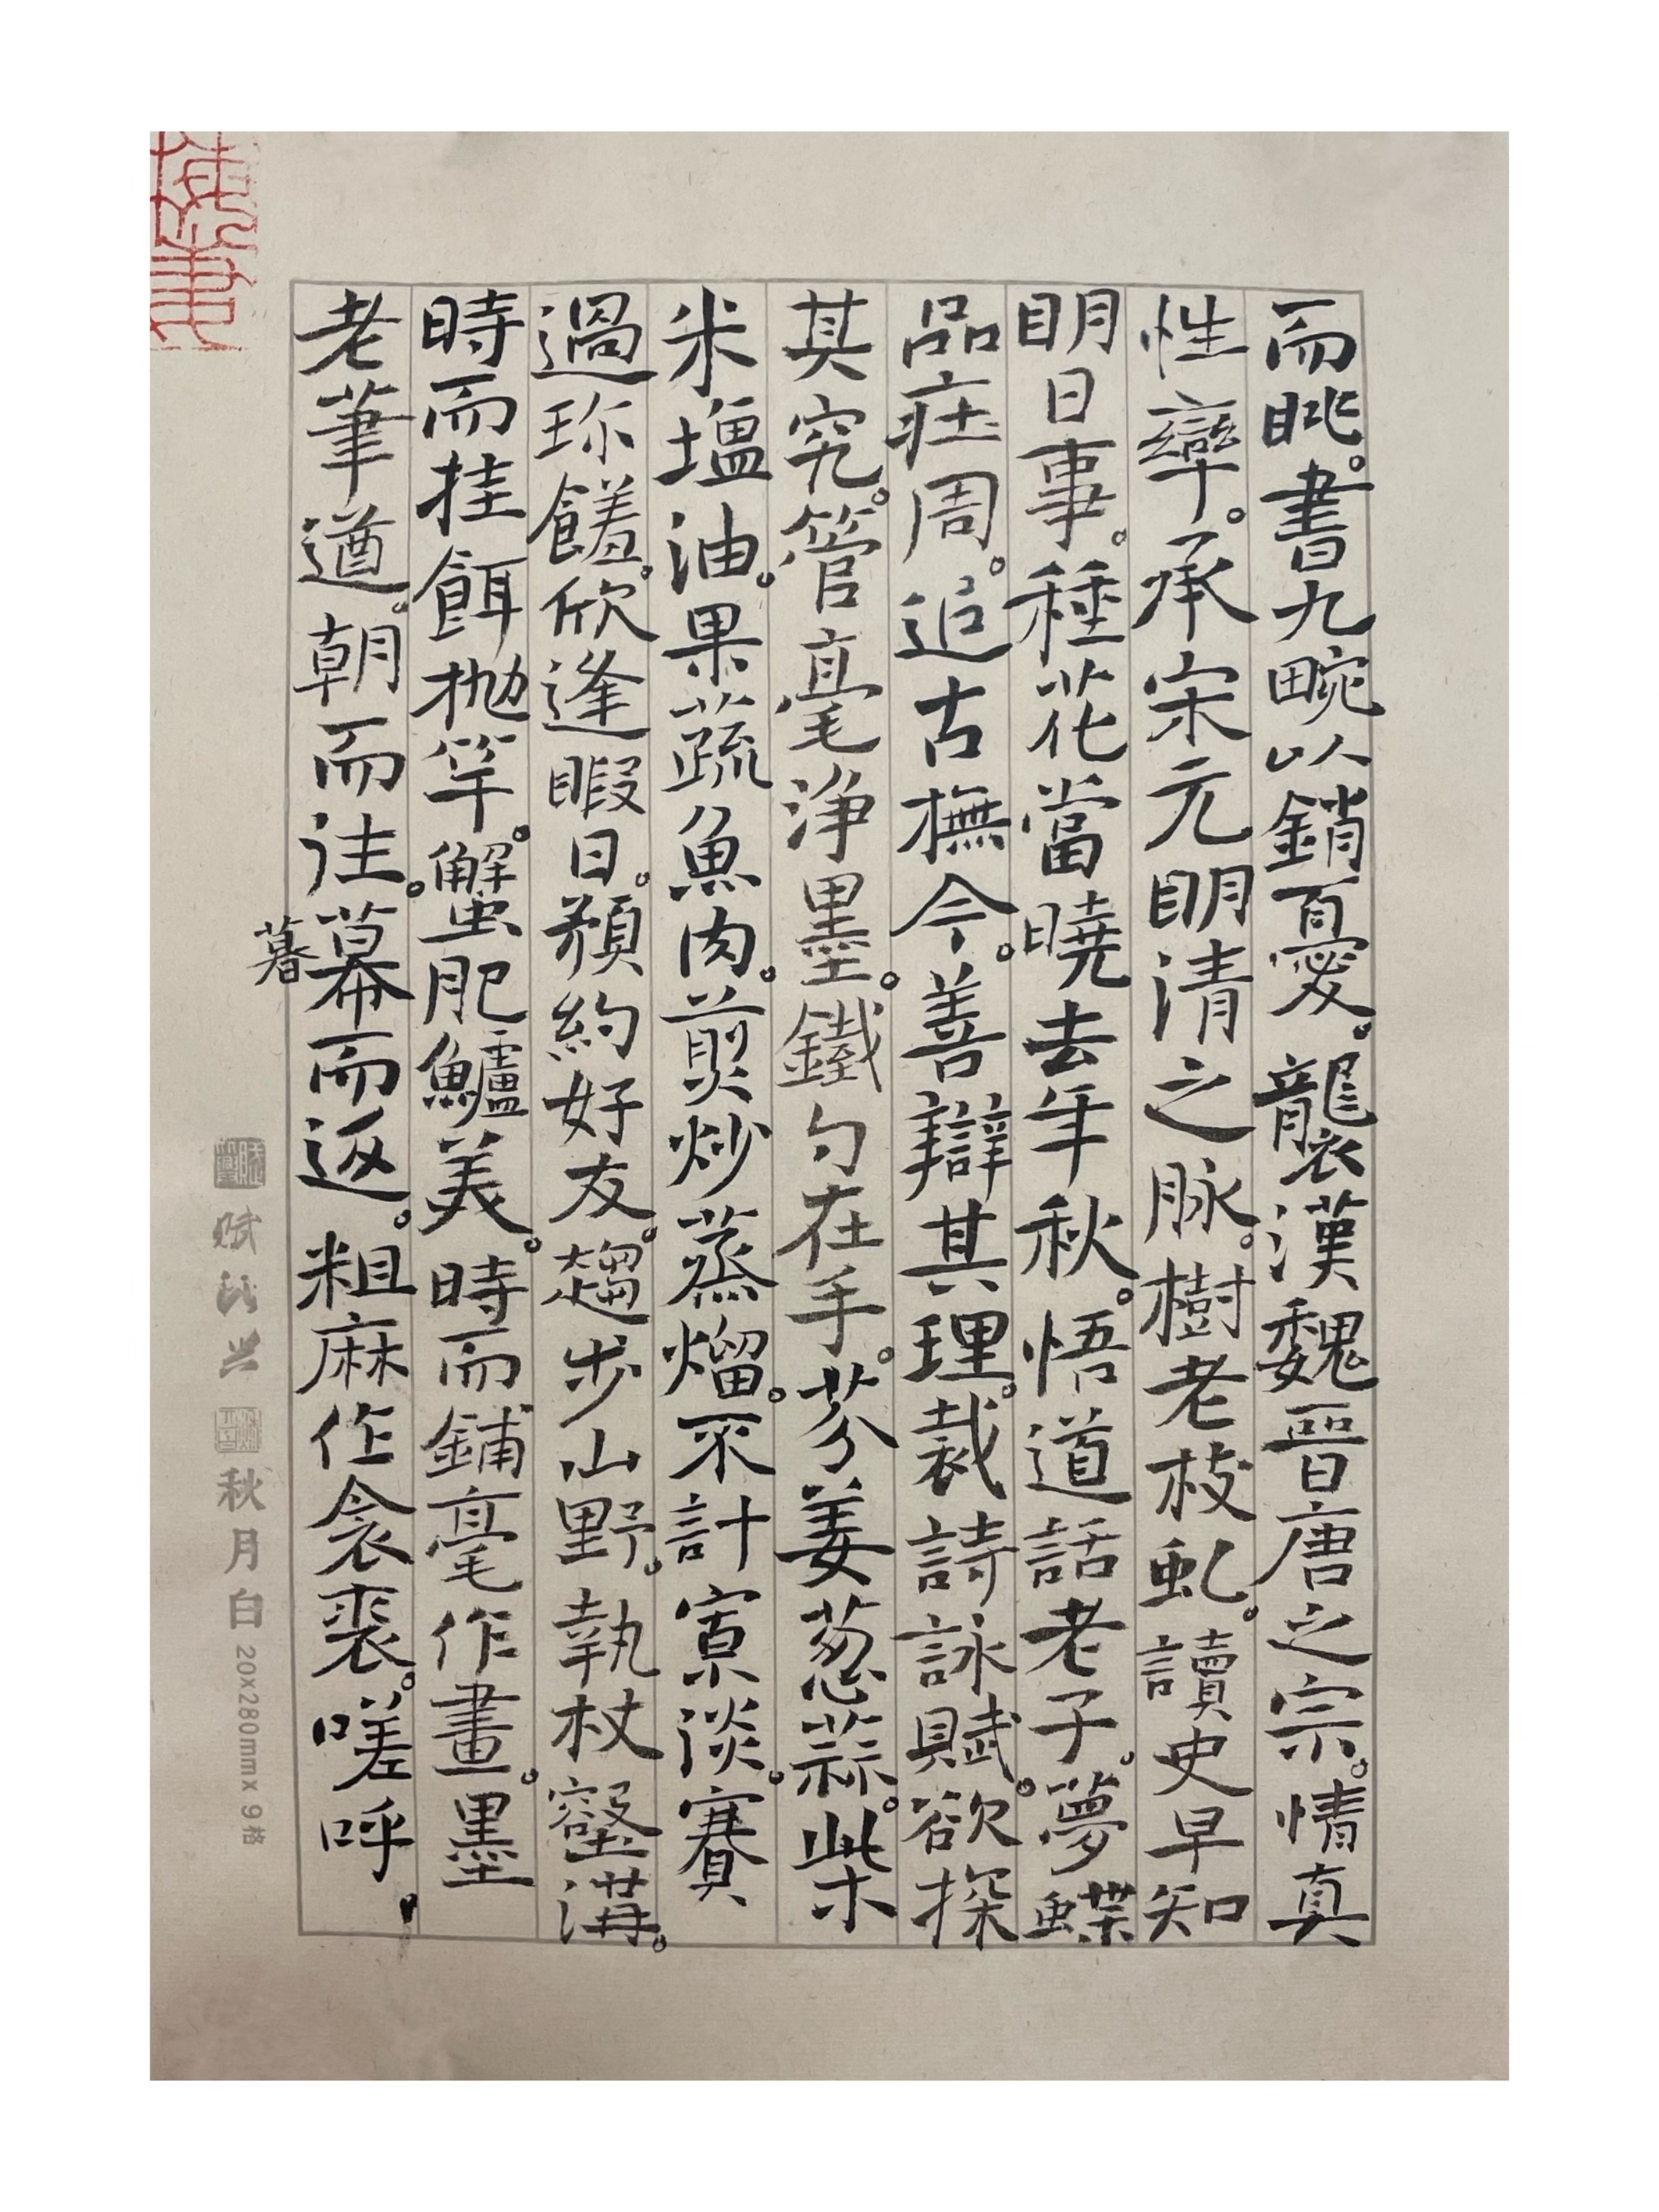 而眺。書九畹以銷百憂。襲漢魏晉唐之宗。情真
性孿。承宋元明清之脉。樹老枝虬。讀史早知
明日事。種花當曉去年秋。悟道話老子。夢蝶
品莊周。追古撫今。善辯其理。裁詩詠賦。欲探
其究。管毫淨墨。鐵勺在手。芥姜葱蒜。柴
米塩油。果蔬魚肉。煎炒蒸熘。不計寡淡。賽
過珎饈。欣逢暇日。頻約好友。趨步山野。執杖壑溝。
時而挂餌抛竿。蟹肥鱸美。時而鋪毫作畫。墨
老筆遒。朝而往。幕而返。粗麻作衾裘。嗟呼，
暮
秋月白 20x280mmx9格